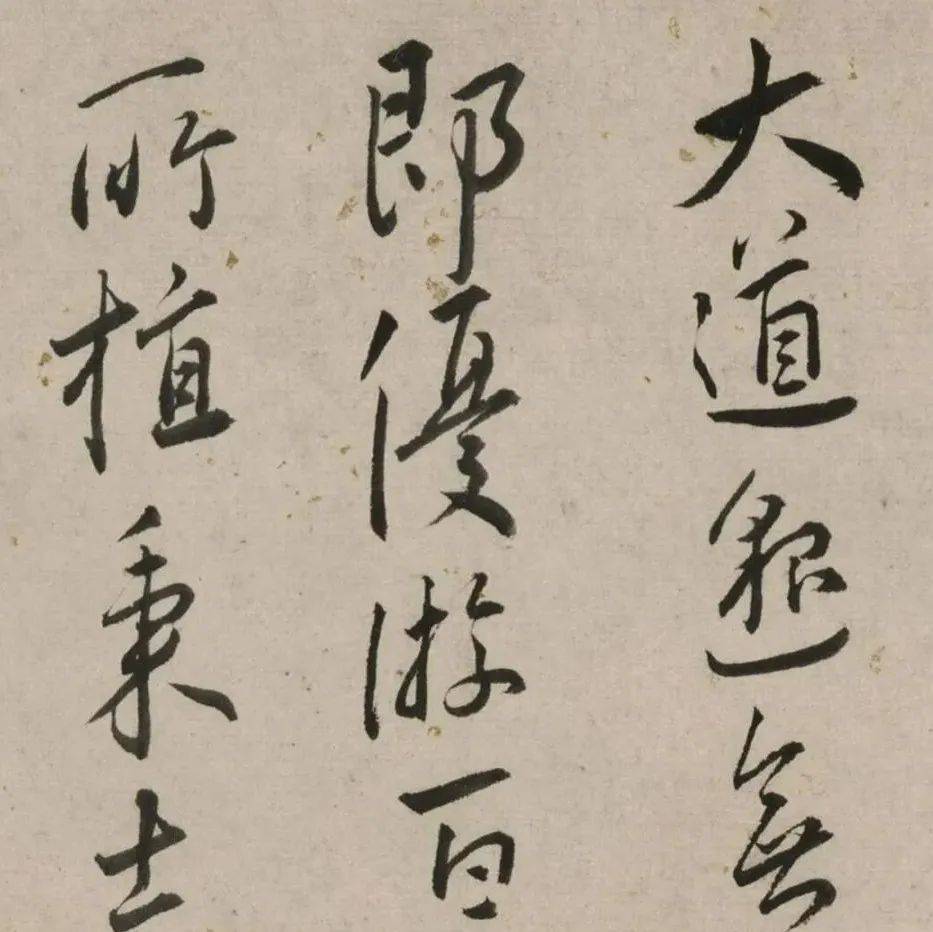 大道邈無
即優游百
所植秉士